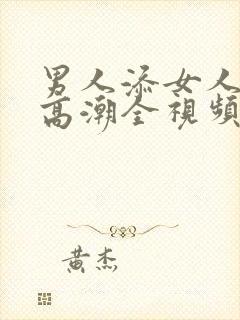 男人添女人
高潮全視頻
黃杰